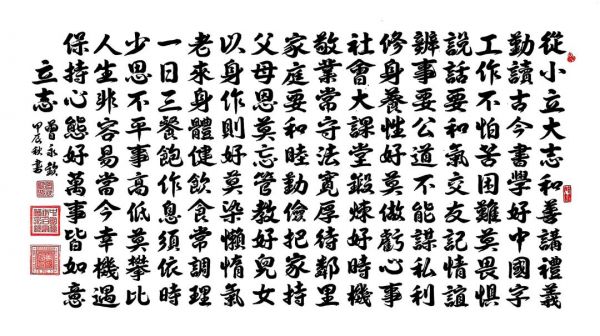 從小立大志和善講禮義
勤讀古今書學好中國字
工作不怕苦困難莫畏惧
說話要和氣交友記情誼
辦事要公道不能謀私利
修身養性好莫做虧心事
社會大課堂鍛煉好時機
敬業常守法寬厚待鄰里
家庭要和睦勤儉把家持
父母恩莫忘管教好兒女
以身作則好莫染懶惰氣
老來身體健飲食常調理
一日三餐飽作息須依時
少思不平事高低莫攀比
人生非容易當今幸機遇
保持心態好萬事皆如意
立志
曾永欽
甲辰秋書